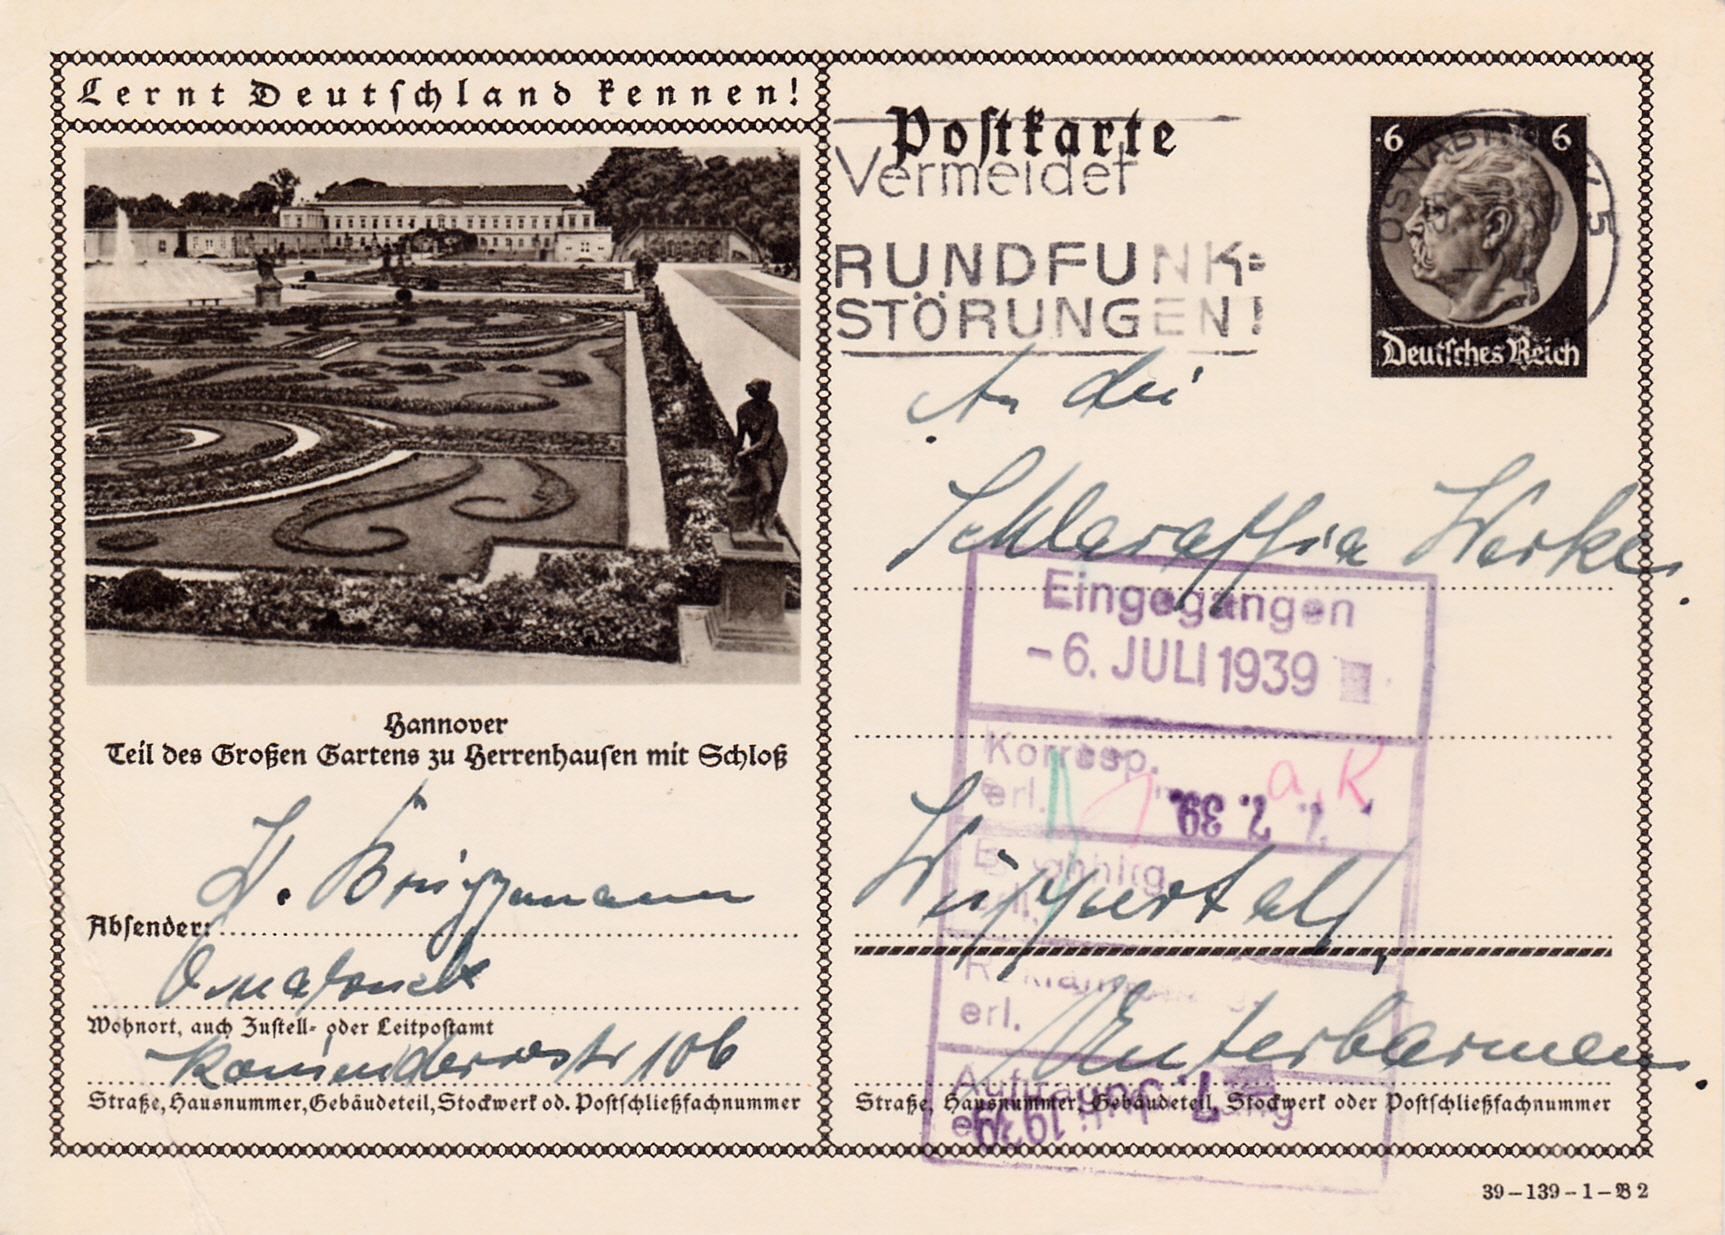 Lernt Deutschland kennen!
Hannover
Teil des Großen Gartens zu Herrenhausen mit Schloß
W. Brüggemann
Absender:
Osnabrück
Wohnort, auch Zustell- oder Leitpostamt
106
Straße, Hausnummer, Gebäudeteil, Stockwerk od. Postschließfachnummer
Postkarte
Vermeidet
RUNDFUNK=
STÖRUNGEN!
6 6
OSNABRÜCK 5
Deutsches Reich
An die
Schlaraffia Werke
Eingegangen
-6. JULI 1939
Korresp.
erl.
a. K.
7. 7. 39
Wuppertal
erl.
Unterbarmen.
Auftrag
7. Juli 1939
Straße, Hausnummer, Gebäudeteil, Stockwerk oder Postschließfachnummer
39-139-1-B2